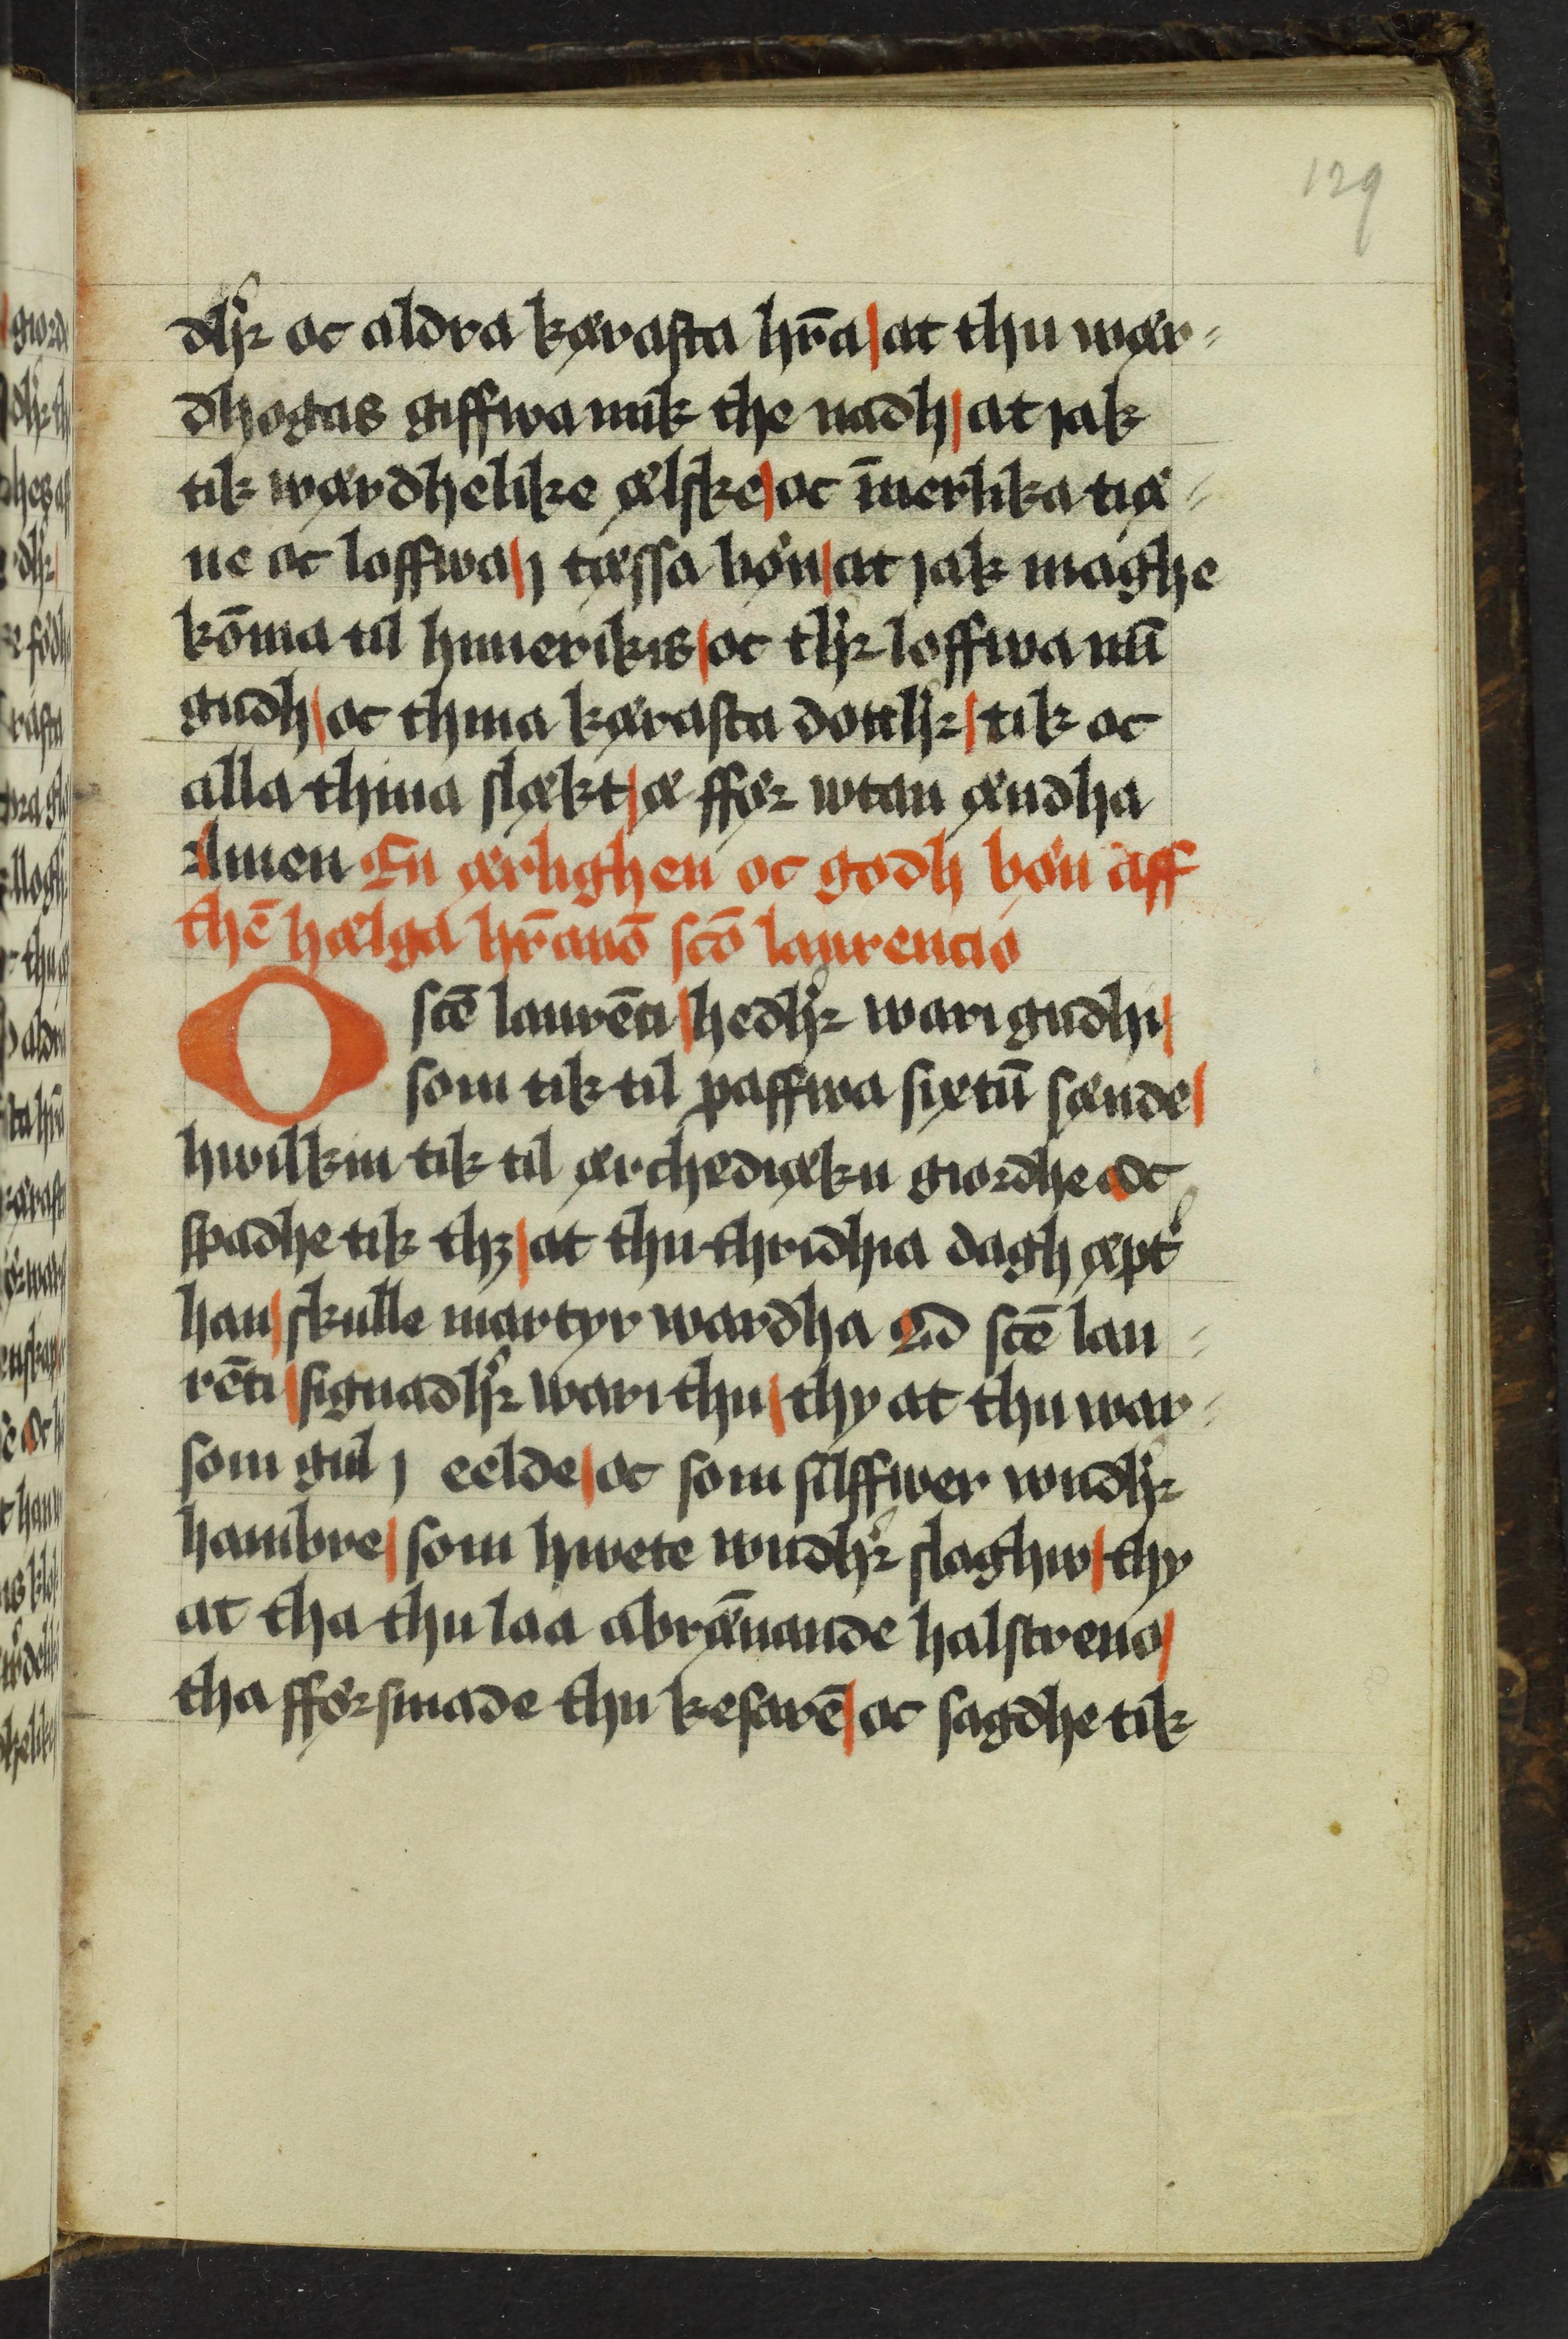 129
dhr̛ oc aldra kærasta hr̄a / at thu wær-
dhogas giffwa mik the nadh / at jak
tik wærdhelike ælske / oc īnerlika tiæ-
ne oc loffwa / j tæssa bøn / at jak maghe
kōma til himerikis / oc thr̛ loffwa mī
gudh / oc thina kærasta dotthr̛ / tik oc
alla thina slækt / æ ffør wtan ændha
Amen En ærlighen oc godh bøn aff
thē hælga hr̄anō scō laurencio
O scē laurēti / hedhr̛ wari gudhi /
som tik til paffwa sixtū sænde /
hwilkin tik til ærchediækn giordhe Oc
spadhe tik thꝫ / at thu thridhia dagh æpt̛
han / skulle martyr wardha O scē lau-
rēti / signadhr̛ wari thu / thy at thu war-
som gul j eelde / oc som silffwer wndhr̛
hambre / som hwete wndhr̛ slaghw / thy
at tha thu laa a brænnande halstreno /
tha fførsmade thu kesarē / oc sagdhe tik